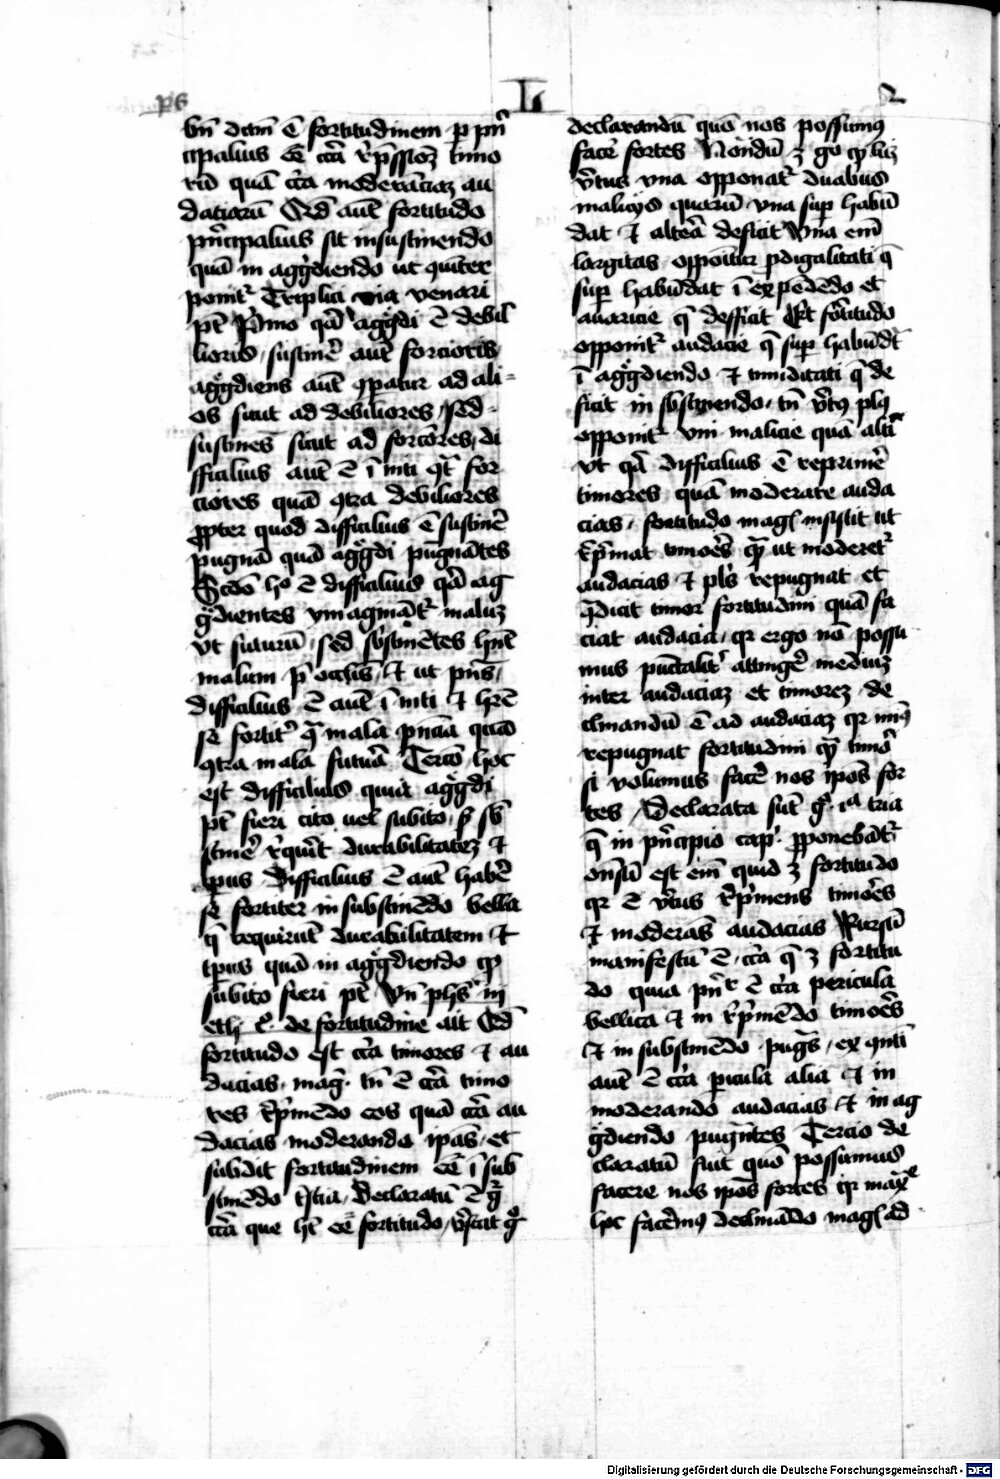 ps
L
2
bn̄ dctm̄ ē fortitudinem p pn̄
cipalius eē cc̄a rep̄ssioꝫ timo
rū quā cc̄a moderācōꝫ au
datiarū Qd̄ aut̄ fortitudo
pn̄cipalius sit in sustinendo
quā in aggrediendo ut
ponit᷑ Triplici via venari
pt̄ Primo qa aggredi ē debil
lioris sustinē aut̄ forcioris
aggrediens aut̄ ꝯparatur ad ali
os sicut ad debiliores sed
sustines sicut ad forciores di
fficilius aut̄ ē ī niti ꝯt᷑ for
ciores quā ꝯtra debiliores
ꝓpter quod difficilius ē sustinē
pugnā quā aggredi pugnātes
Scdō hº ē difficilius qa ag
gredientes ymagināt᷑ maluꝫ
ut futurū sed sbstinētes hn̄t
malum p̄ oculis et ut pn̄s
difficilius ē aut̄ ī niti et hr̄e
se fortit᷑ ꝯᵃ mala pn̄cia quā
ꝯtra mala futura Tercō hoc
est difficilius quia aggredi
pt̄ fieri cito uel subito sꝫ sb
stinē requirit durabilitateꝫ et
tp̄us Difficilius ē aut̄ habē
se fortiter in substinēdo bella
q̄ requirūt durabilitatem et
tp̄us quā in aggrediendo qꝫ
subito fieri pt̄ Vn̄ ph̄s in
eth de fortitudine ait Qd̄
fortitudo est cc̄a timores et au
dacias mag tn̄ ē cc̄a timo
res rep̄mēdo eos quā cc̄a au
dacias moderando ipās et
subdit fortitudinem eē ī sub
stinēdo Declaratū ē gͦ
cc̄a que ht̄ eē fortitudo gͦ
declarandū quō nos possumus
facē fortes Nōndū ꝫ gͦ qꝫ licꝫ
v̄tus vna opponat᷑ duabus
malicijs quarū vna sup habū
dat et altera deficit Vna em̄
largitas opponitur ꝓdigalitati q̄
sup habūdat ī expēdēdo et
auaricie q̄ defficit Et fōrtitudo
opponit᷑ audacie q̄ sup habūdt̄
ī aggrediendo et timiditati q̄ de
ficit in sbstinendo tn̄ v̄tus plus
opponit᷑ vni malicie quā alti
ut qa difficilius ē reprimē
timores quā moderare auda
cias fortitudo magꝭ insistit ut
rep̄mat timoēs qᵃ ut moderet᷑
audacias et pl̄s repugnat et
ꝯ̄dicit timor fortitudini quā fa
ciat audacia qr ergo nō possu
mus pūctalit᷑ attingē mediuꝫ
inter audaciaꝫ et timoreꝫ de
clinandū ē ad audaciaꝫ qr min᷒
repugnat fortitudini qᵃ timor
si volumus facē nos ipōs for
tes Declarata sūt gͦ ia tria
q̄ in pn̄cipio cap ꝓponebāt᷑
onsū est em̄ quid ꝫ fortitudo
qr ē v̄tus rep̄mens timoēs
et moderās audacias Rursū
manifestū ē cc̄a q̄ ꝫ fortitu
do quia ē cc̄a pericula
bellica et in rep̄mēdo timoēs
et in substinēdo pugᷓs ex ꝯnti
aut̄ ē cc̄a picula alia et in
moderando audacias et in ag
grediendo pugn̄tes Tercio de
claratū fuit quō possumus
facere nos ipōs fortes qr maxīe
hoc facem᷒ declinādo magꝭ ad
Digitalisierung gefördert durch die Deutsche Forschungsgemeinschaft - DFG